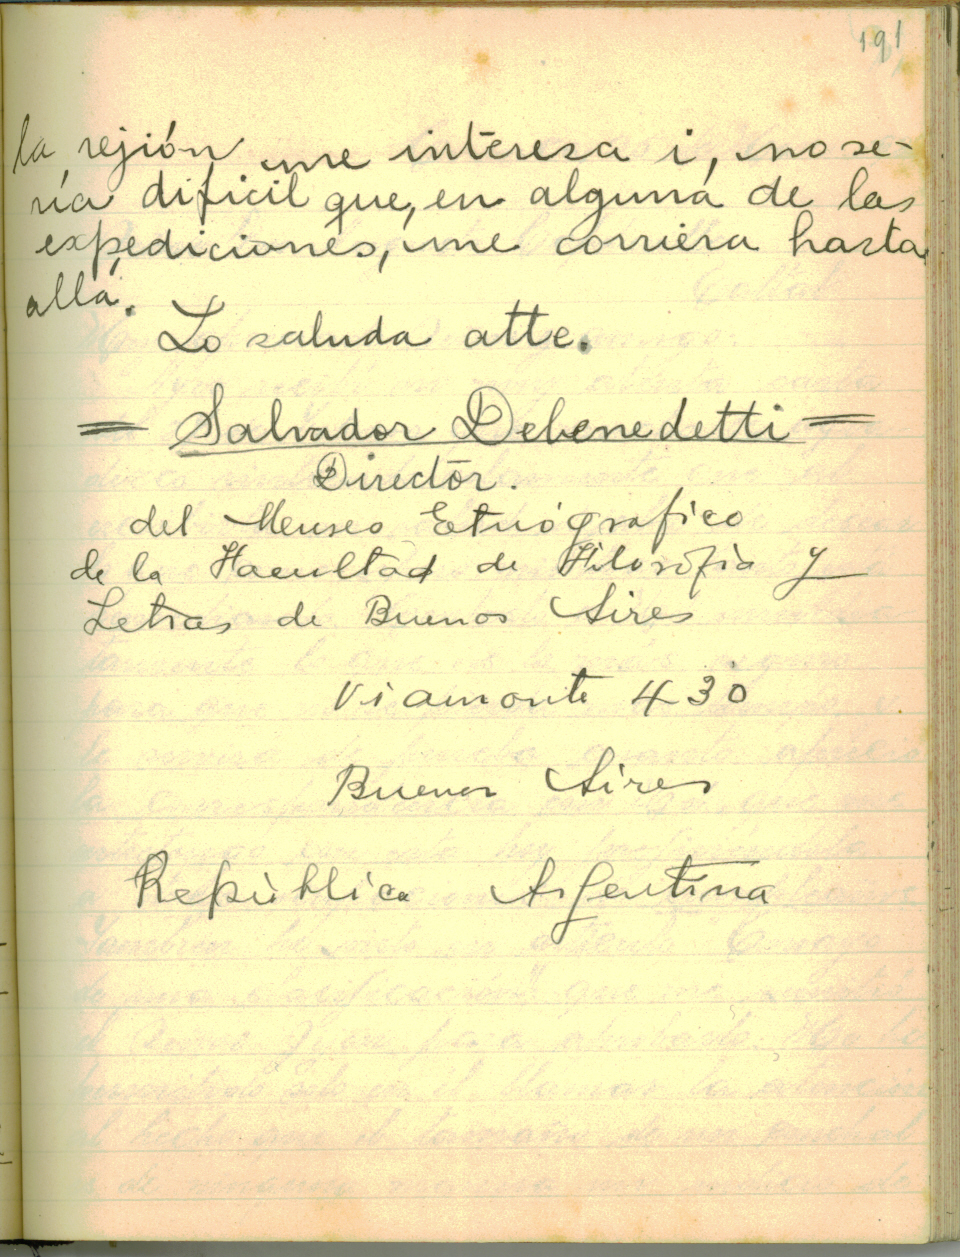 191
la rejión me interesa i, no se-
ría dificil que, en alguna de las
expediciones, me corriera hasta
allá.
Lo saluda atte.
= Salvador Debenedetti =
Director.
del Museo Etnógrafico
de la Facultad de Filosofia y
Letras de Buenos Aires
Viamonte 430
Buenos Aires
Repùblica Argentina